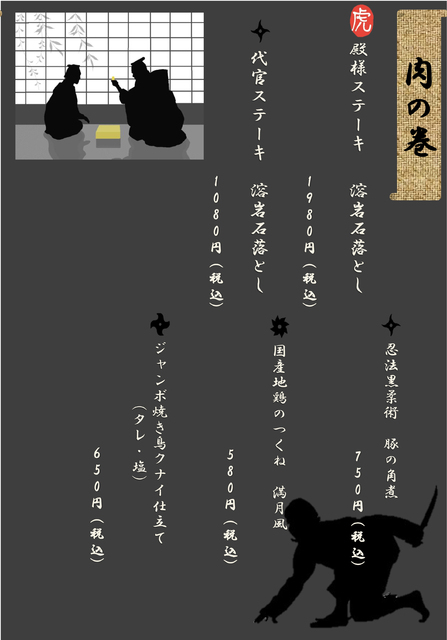 肉の巻
虎
殿様ステーキ 溶岩石落とし
1980円(税込)
代官ステーキ 溶岩石落とし
1080円(税込)
忍法黒柔術 豚の角煮
750円(税込)
国産地鶏のつくね 満月風
580円(税込)
ジャンボ焼き鳥クナイ仕立て
(タレ・塩)
650円(税込)